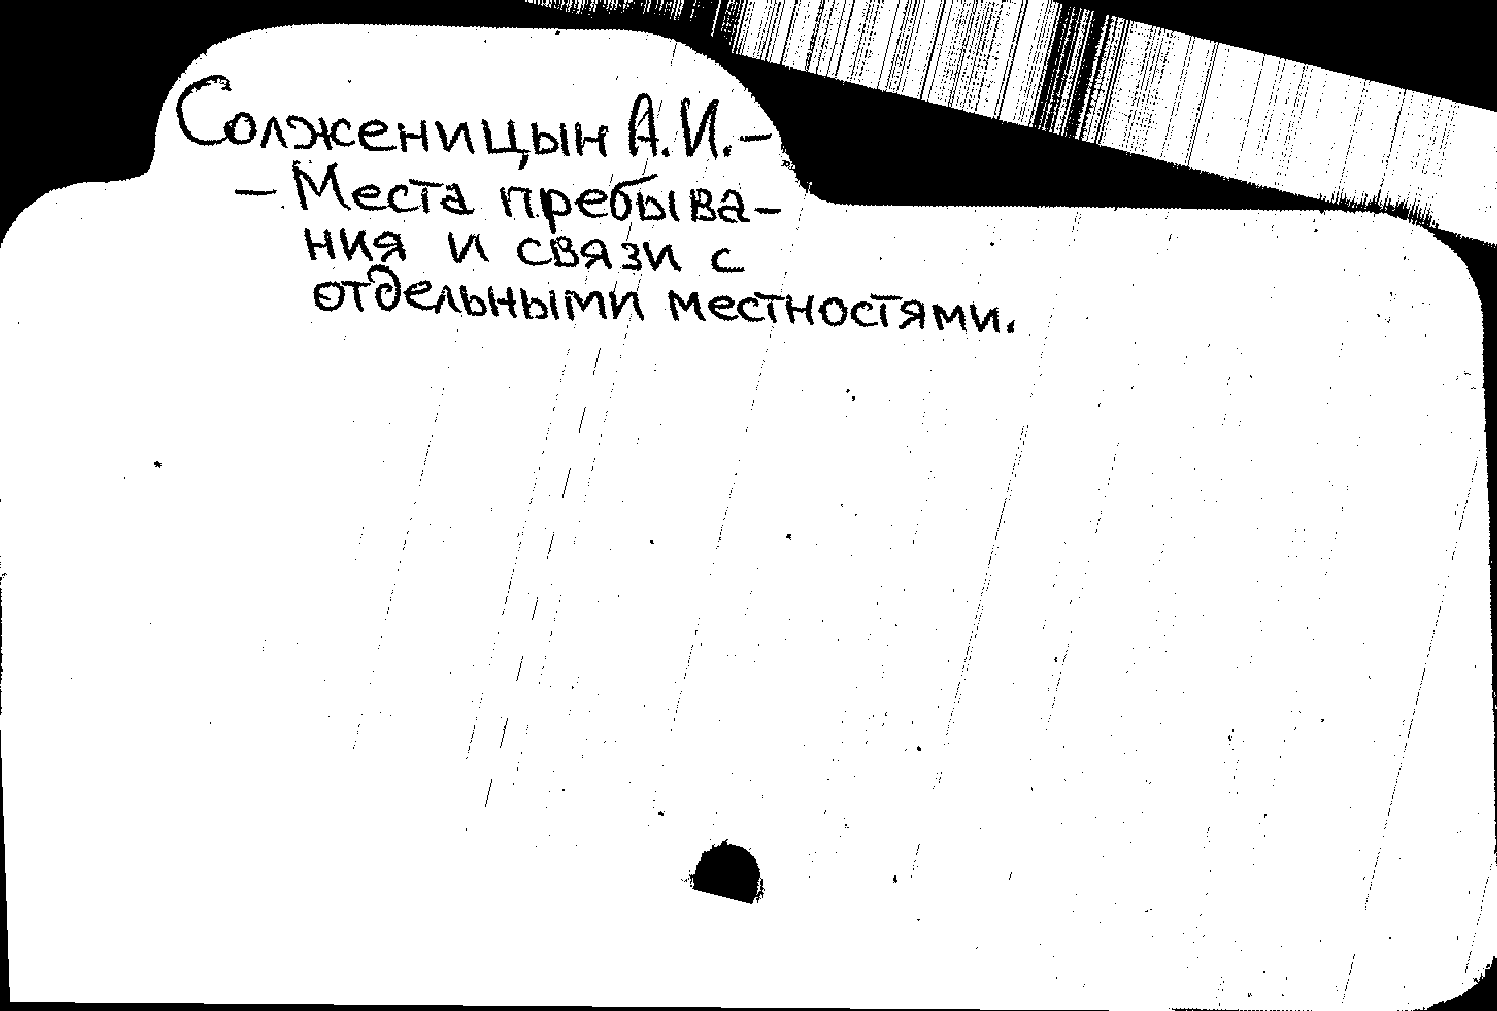 Солженицын А.И. –
– Места пребыва-
ния и связи с
отдельными местностями.